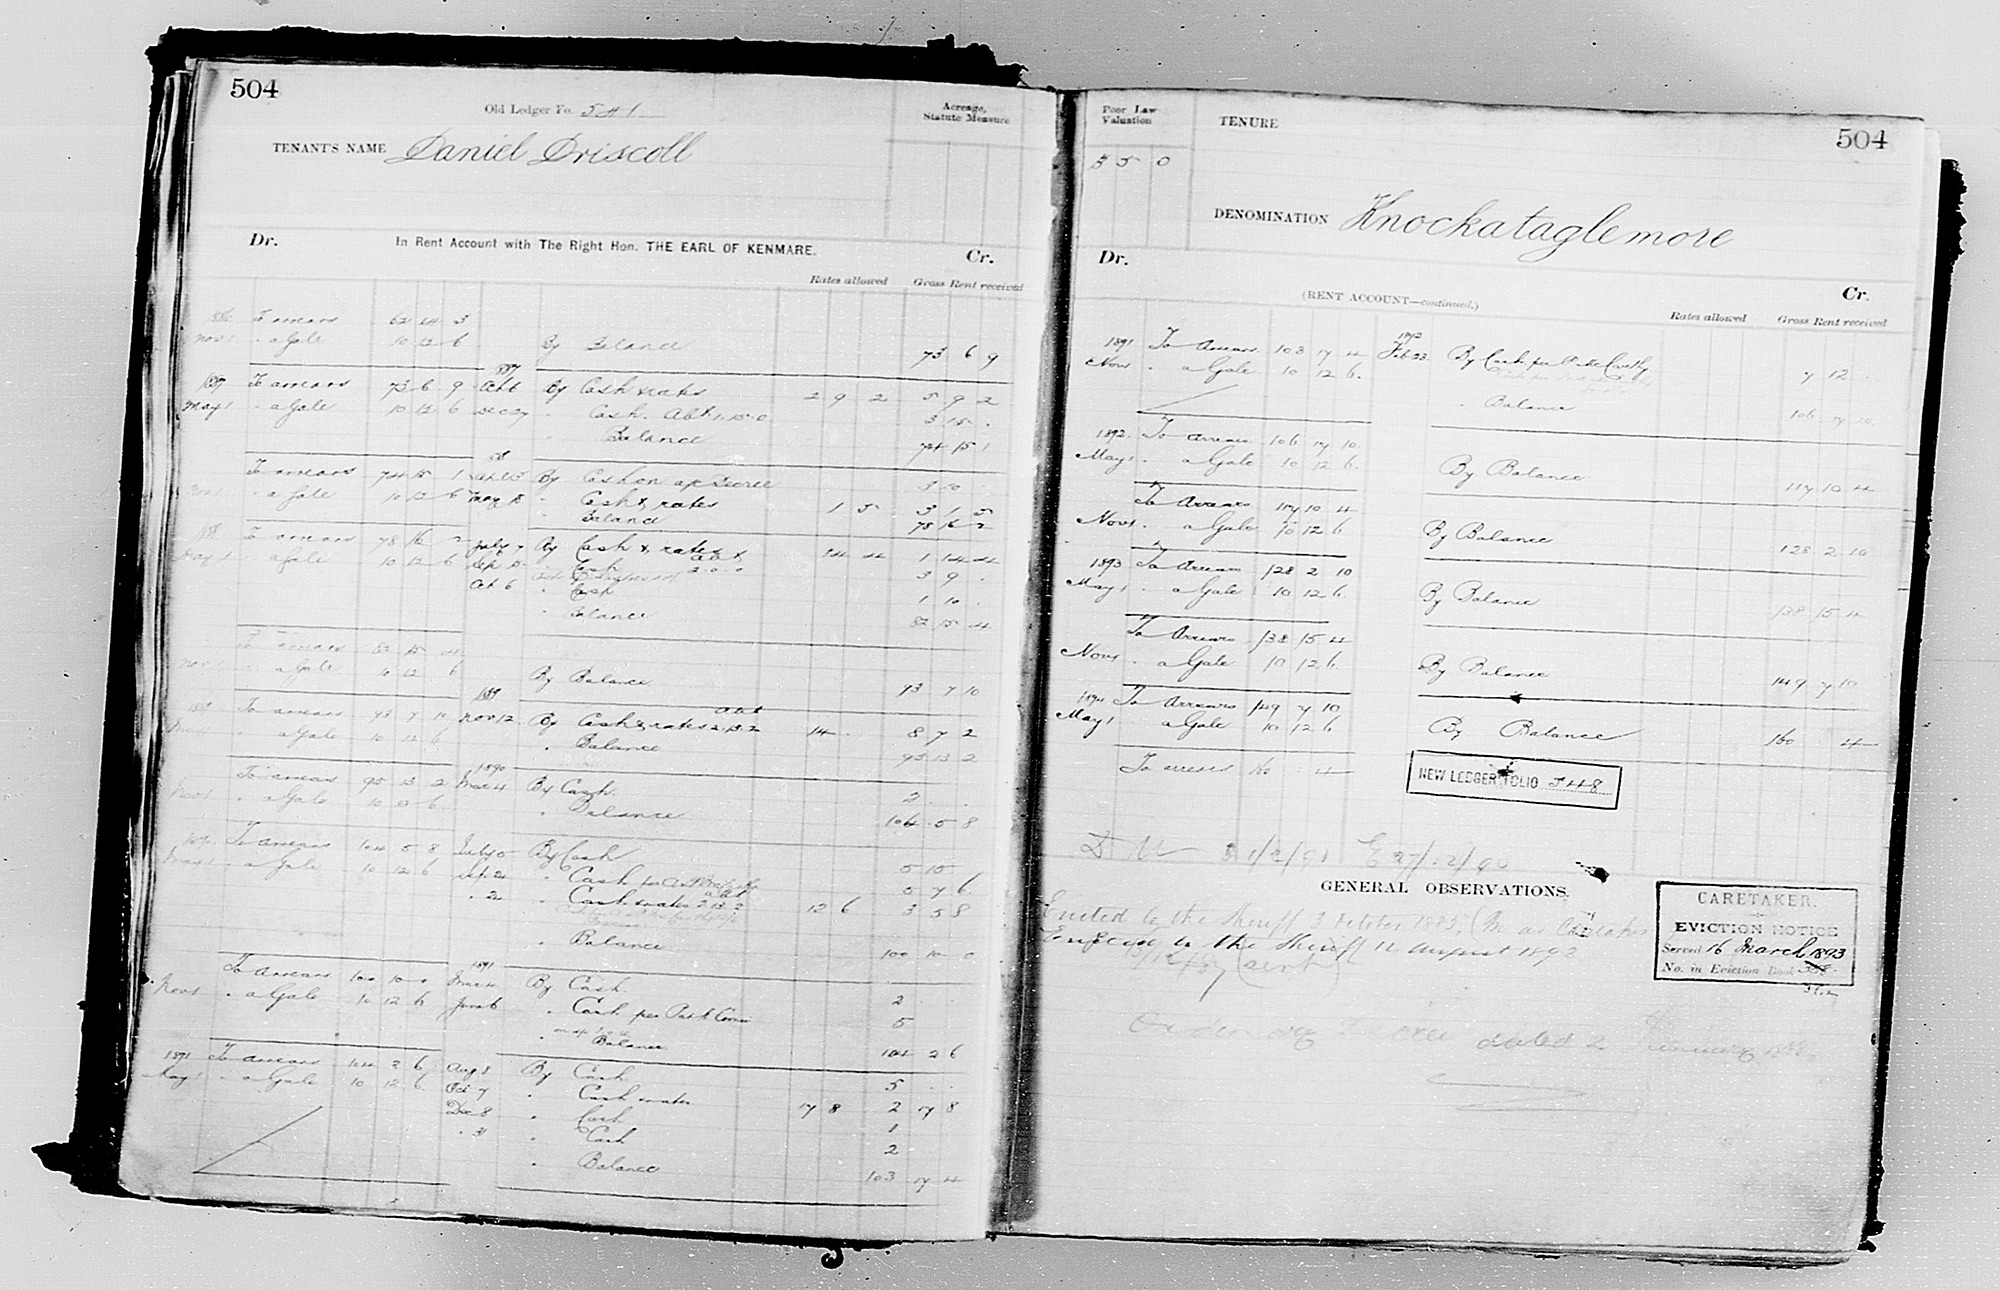 504
Old Ledger Fo. 541
Acreage,
Statute Measure
TENANT'S NAME Daniel Driscoll
Dr. In Rent Account with The Right Hon. THE EARL OF KENMARE. Cr.
Rates allowed Gross Rent received
To arrears 62 14 3
Nov 1 " a Gale 10 12 6 By Balance 73 6 9
1887 To arrears 73 6 9 Oct 6 By Cash & rates 2 9 2 5 9 2
May 1 " a Gale 10 12 6 " Cash. Abt 1.15.0 3 15 .
" Balance 74 15 1
88
To arrears 74 15 1 By Cash on a/c Decree 3 0
" a Gale 10 12 6 May 18 " Cash & rates 1 5 3 1 5
" Balance 78 16 2
To arrears 78 16 2 July 7 By Cash & rates 14 4 1 14 4
May 1 " a Gale 10 12 6 Sep 15 " Cash 2.0.0 3 9 .
Oct 6 " Cash 1 10 .
" Balance 82 15 4
To arrears 82 15 4
Nov 1 " a Gale 10 12 6 By Balance 93 7 10
1889 abt
To arrears 93 7 10 Nov 12 By Cash & rates 2.13.2 14 . 8 7 2
" a Gale 10 12 6 " Balance 95 13 2
1890
To arrears 95 13 2 Mar 4 By Cash 2 . .
Nov 1 " a Gale 10 12 6 " Balance 104 5 8
To arrears 104 5 8 July 5 By Cash 5 15
May 1 " a Gale 10 12 6 Sep 2 " Cash per 5 7 6
" 2 " Cash & rates 2.13.2 12 6 3 5 8
" Balance 100 10 0
1891
To arrears 100 10 0 Mar 4 By Cash 2 . .
Nov 1 " a Gale 10 12 6 Jan 6 " Cash per 5
" Balance 104 2 6
1891 To arrears 104 2 6 Aug 8 By Cash 5 . .
May 1 " a Gale 10 12 6 Oct 7 " Cash & rates 17 8 2 17 8
Dec 8 " Cash 1
" 31 " Cash 2
" Balance 103 17 4
Poor Law
Valuation
5 0
TENURE
504
DENOMINATION Knockataglemore
Dr. (RENT ACCOUNT—continued.) Cr.
Rates allowed Gross Rent received
1892
1891 To Arrears 103 17 4 Feb 23 By Cash per McCarthy 7 12 .
Nov 1 " a Gale 10 12 6
" Balance 106 17 10
1892 To Arrears 106 17 10
May 1 " a Gale 10 12 6 By Balance 117 10 4
To Arrears 117 10 4
Nov 1 " a Gale 10 12 6 By Balance 128 2 10
1893 To Arrears 128 2 10
May 1 " a Gale 10 12 6 By Balance 138 15 4
To Arrears 138 15 4
Nov 1 " a Gale 10 12 6 By Balance 149 7 10
1894 To Arrears 149 7 10
May 1 a Gale 10 12 6 By Balance 160 4
To arrears 160 . 4
NEW LEDGER FOLIO 548
E 27/12/90
GENERAL OBSERVATIONS.
Evicted by the Sheriff 3 October 1885, (In as Caretaker
Evicted by the Sheriff 12 August 1892
(sent)
Ordinary Decree dated 2
CARETAKER.
EVICTION NOTICE
Served 16 March 1893
No. in Eviction Book 358